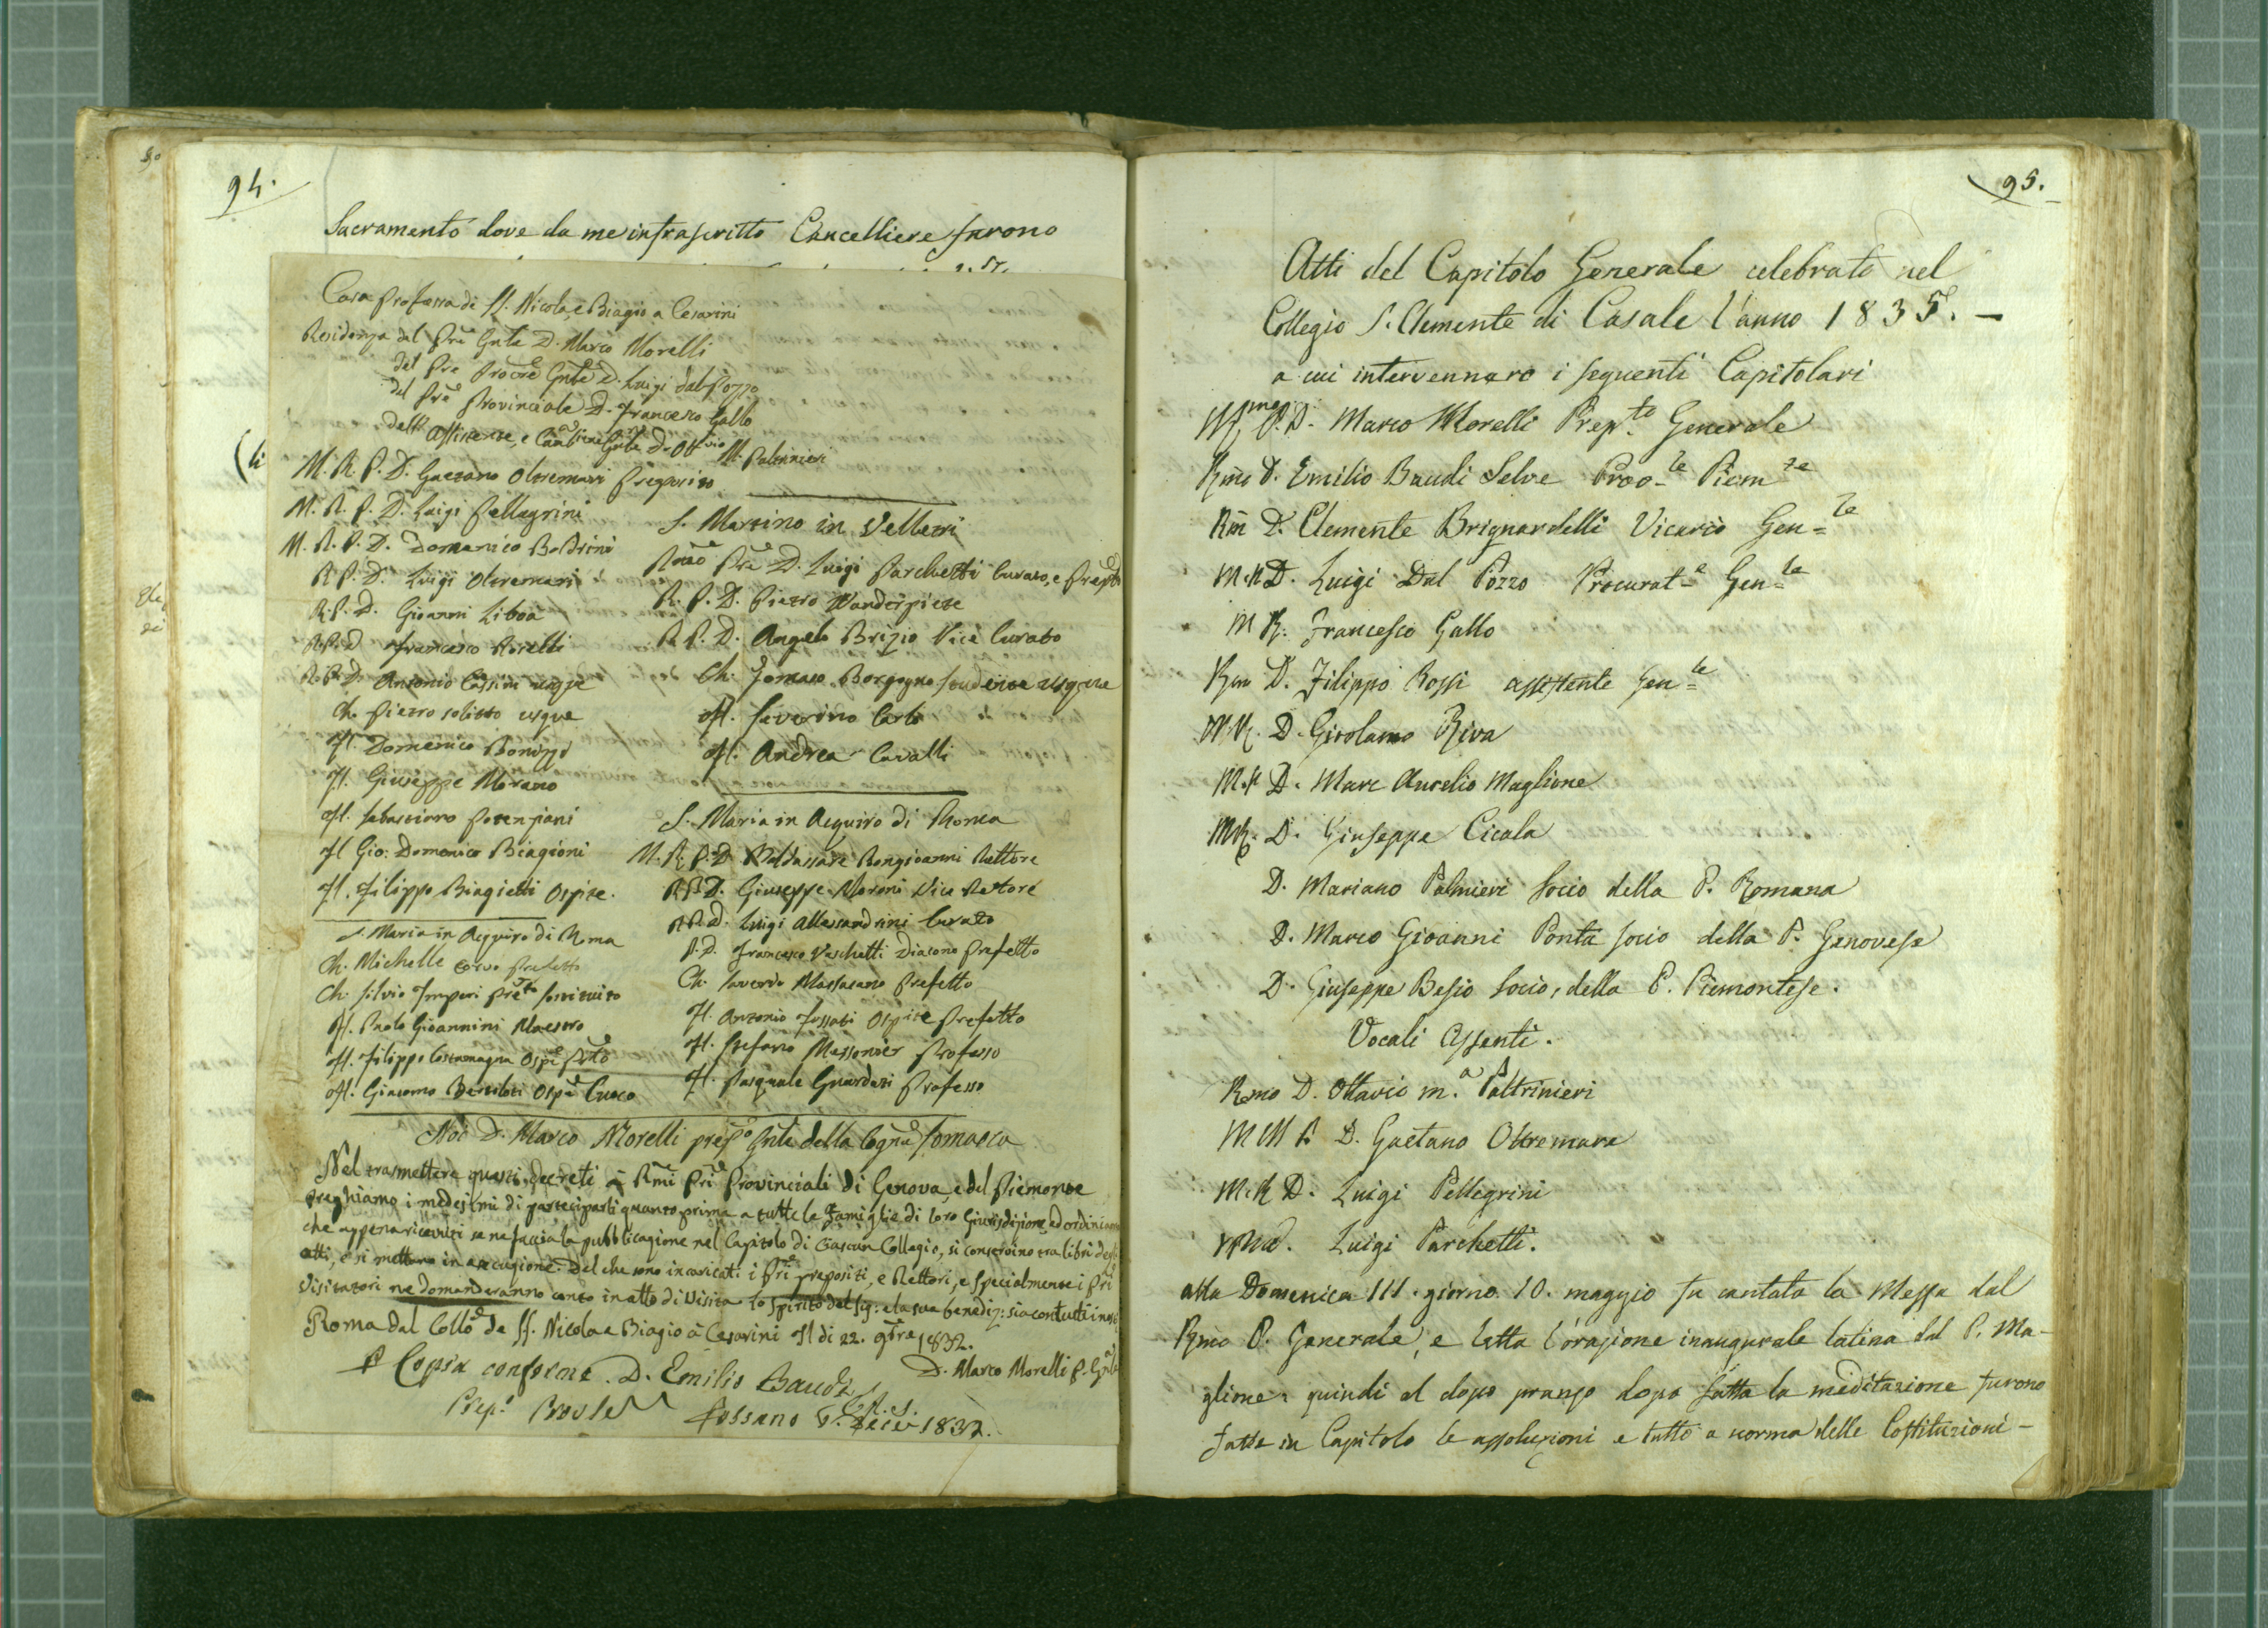 94.
Sacramento dove da me infrascritto Cancelliere furono
Casa professa di SS. Nicola, e Biagio a Cesarini
Residenza del Pre Gnle D. Marco Morelli
del Pre Procre Gnle D. Luigi dal Pozzo
del Pre Provinciale D. Francesco Gallo
dell'Assistente, e Cancelliere Gnle D. Ottvio M. Paltrinieri
M. R. P. D. Gaetano Oltremari
M. R. P. D. Luigi Pellegrini
M. R. P. D. Domenico Boldrini
R. P. D. Luigi Oltremari
R. P. D. Gioanni Liboà
R. P. D. Francesco Morelli
R. P. D. Antonio Cassini
Ch. Pietro solitto usque
Fl. Domenico
Fl. Giuseppe Morano
Fl. Sebastiano Potenziani
Fl. Gio: Domenico Biagioni
Fl. Filippo Biagietti Ospite.
S. Maria in Aquiro di Roma
Ch. Michelle Corvo Prefetto
Ch. Silvio Imperi Preto sostituito
Fl. Paolo Gioannini Maestro
Fl. Filippo Costamagna Ospe
Fl. Giacomo Bertiloti Ospe Cuoco
S. Martino in Velletri
Rmo Pre D. Luigi Parchetti Curato, e Prepto
R. P. D. Pietro
R. P. D. Angelo Brizio Vice Curato
Ch. Tomaso Borgogno studente usque
Fl. Severino Carli
Fl. Andrea Cavalli
S. Maria in Aquiro di Roma
M. R. P. D. Baldassare Bongioanni Rettore
R. P. D. Giuseppe Moroni Vice Rettore
R. P. D. Luigi Alessandrini Curato
P. D. Francesco Vaschetti Diacono Prefetto
Ch. Saverio Massasano Prefetto
Fl. Antonio Fossati Ospite Prefetto
Fl. Stefano Massonier Professo
Fl. Pasquale Guardari Professo
Noi D. Marco Morelli prepo Gnle della Congne Somasca
Nel trasmettere questi decreti a Rmi Pri Provinciali di Genova, e del Piemonte
preghiamo i medesimi di parteciparli quanto prima a tutte le Famiglie di loro Giurisdizione, ed ordiniamo
che appena ricevuti se ne faccia la pubblicazione nel Capitolo di Ciascun Collegio, si conservino tra libri degli
atti, e si mettano in esecuzione. Del che sono incaricati i Pri prepositi, e Rettori, e specialmente i Pri
Visitatori ne domanderanno conto in atto di Visita. Lo spirito del Sig: e la sua benediz: sia con tutti
Roma dal Collo de SS. Nicola e Biagio à Cesarini Il di 22. 9bre 1832.
D. Marco Morelli P. Gnle
P Copia conforme. D. Emilio Baudi
Prep. Prov le
Fossano 1832.
95.
Atti del Capitolo Generale celebrato nel
Collegio S. Clemente di Casale l'anno 1835. -
a cui intervennero i seguenti Capitolari
P. D. Marco Morelli Prep.to Generale
Rmo D. Emilio Baudi Selve Prov-le Piem te
Rm D. Clemente Brignardelli Vicario Gen=le
M. R D. Luigi Dal Pozzo Procurat-e Gen=le
M R. Francesco Gallo
Rmo D. Filippo Rossi assistente Gen=le
M R. D. Girolamo Riva
M. R D. Marc Aurelio Maglione
M R. D. Giuseppe Cicala
D. Mariano Palmieri Socio della P. Romana
D. Marco Gioanni Ponta socio della P. Genovese
D. Giuseppe Besio Socio, della P. Piemontese.
Vocali Assenti.
Rmo D. Ottavio m.a Paltrinieri
D. Gaetano Oltremare
M. R D. Luigi Pellegrini
Luigi Parchetti.
alla Domenica III. giorno 10. maggio fu cantata la Messa dal
Rmo P. Generale, e letta l'orazione inaugurale latina dal P. Ma-
glione: quindi al dopo pranzo dopo fatta la meditazione furono
fatte in Capitolo le assoluzioni e tutto a norma delle Costituzioni -